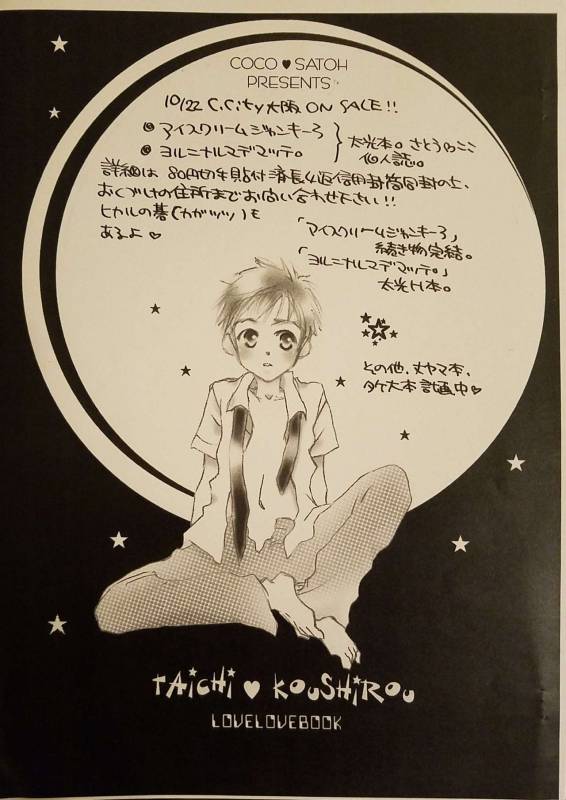 COCO ♥ SATOH
PRESENTS
10/22 C.City大阪 ON SALE!!
◎ アイスクリームジャンキー3
◎ ヨルニナルマデマッテ。
太光本。さとうここ
個人誌。
詳細は 80円切手貼付済長4返信用封筒同封の上、
おくづけの住所までお問い合わせ下さい!!
ヒカルの碁(カガツツ)も
あるよ♡
「アイスクリームジャンキー3」
続き物完結。
「ヨルニナルマデマッテ。」
太光H本。
その他、丈ヤマ本、
タケ大本 計画中♡
TAiCHi ♥ KOUSHiROU
LOVELOVEBOOK